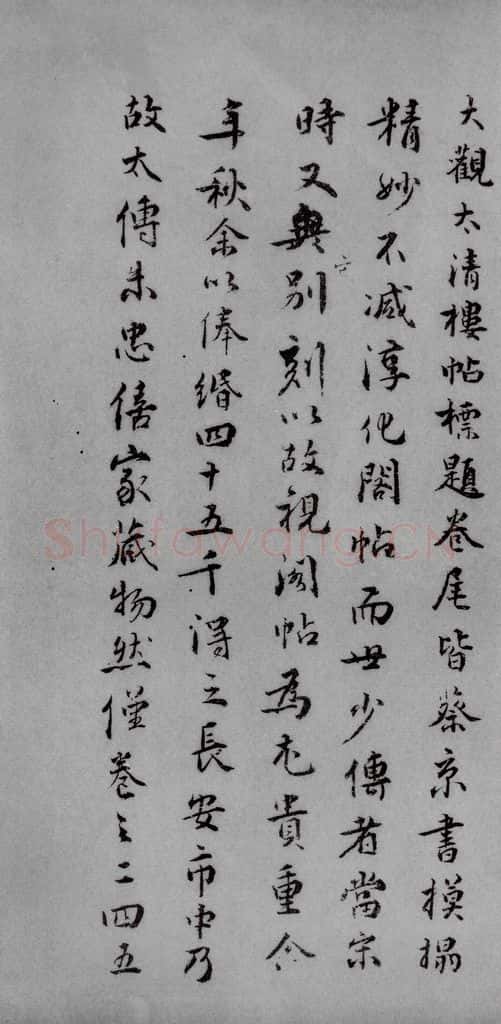 大觀太清樓帖標題卷尾皆蔡京書摸搨
精妙不減淳化閣帖而世少傳者當宋
時又無別刻以故視閣帖為尤貴重今
年秋余以俸緡四十五千得之長安市中乃
故太傅朱忠僖家藏物然僅卷之二四五
Shufawang.CN